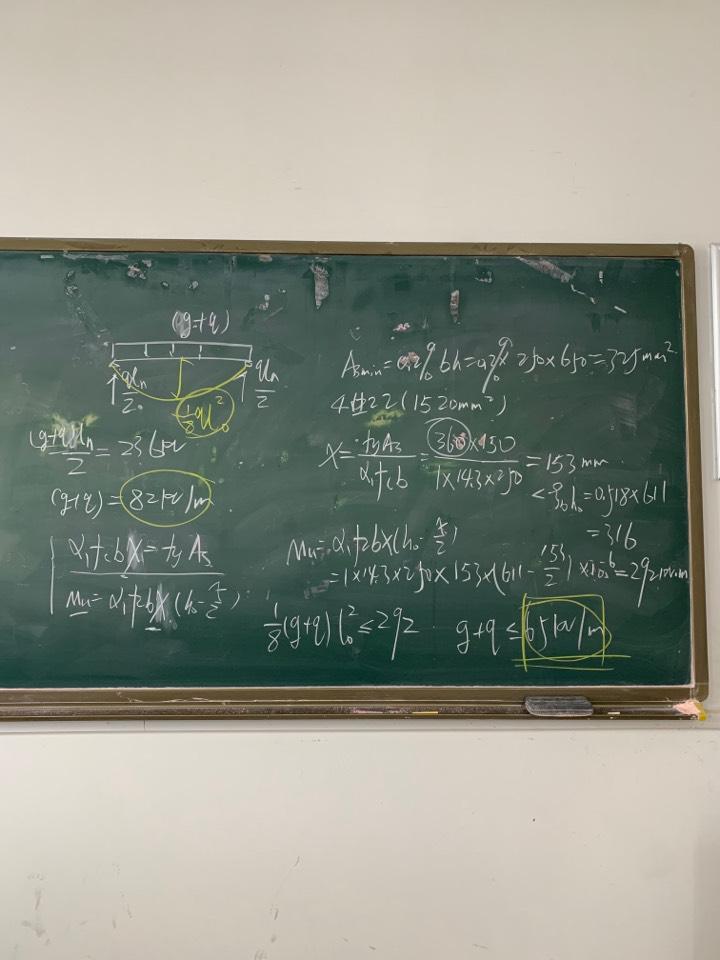 (g+q)
qln/2
qln/2
1/8 ql₀²
(g+q)ln/2 = 236kN
(g+q) = 82kN/m
α₁fcbx = fyAs
Mu = α₁fcbx(h₀ - x/2)
Asmin = 0.2% bh = 0.2% 250×650 = 325mm²
4⌀22 (1520mm²)
x = fyAs/α₁fcb = 360×1 50/1×14.3×250 = 153mm
< ξbh₀ = 0.518×611
= 316
Mu = α₁fcbx(h₀ - x/2)
= 1×14.3×250×153×(611 - 153/2) = 292kN·m
1/8 (g+q) l₀² ≤ 292
g+q ≤ 65kN/m